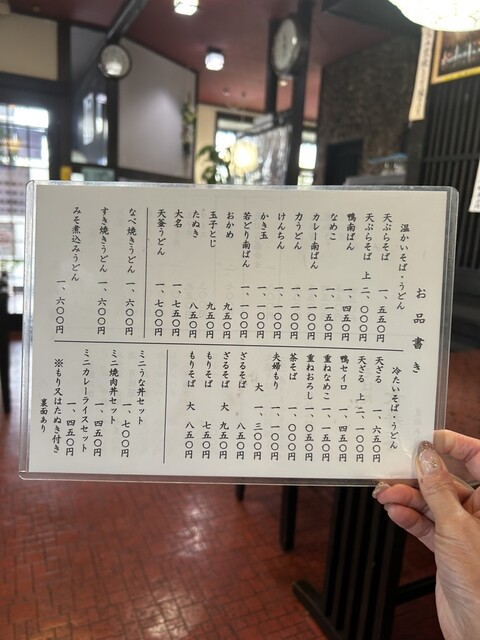 お品書き
温かいそば・うどん
天ぷらそば 一、五五〇円
天ぷらそば 上 二、〇〇〇円
鴨南ばん 一、四五〇円
なめこ 一、一五〇円
カレー南ばん 一、一〇〇円
力うどん 一、一〇〇円
けんちん 一、一〇〇円
かき玉 一、〇〇〇円
若どり南ばん 一、一〇〇円
おかめ 九五〇円
玉子とじ 九五〇円
たぬき 八五〇円
大名 一、七五〇円
天釜うどん 一、七〇〇円
なべ焼きうどん 一、六〇〇円
すき焼きうどん 一、六〇〇円
みそ煮込みうどん 一、六〇〇円
冷たいそば・うどん
天ざる 一、六五〇円
天ざる 上 二、一〇〇円
鴨セイロ 一、四五〇円
重ねなめこ 一、一五〇円
重ねおろし 一、〇五〇円
茶そば 一、〇〇〇円
夫婦もり 一、一〇〇円
大 一、三〇〇円
ざるそば 八五〇円
ざるそば 大 九五〇円
もりそば 七五〇円
もりそば 大 八五〇円
ミニうな丼セット
一、七〇〇円
ミニ焼肉丼セット
一、四五〇円
ミニカレーライスセット
一、四五〇円
※もり又はたぬき付き
裏面あり